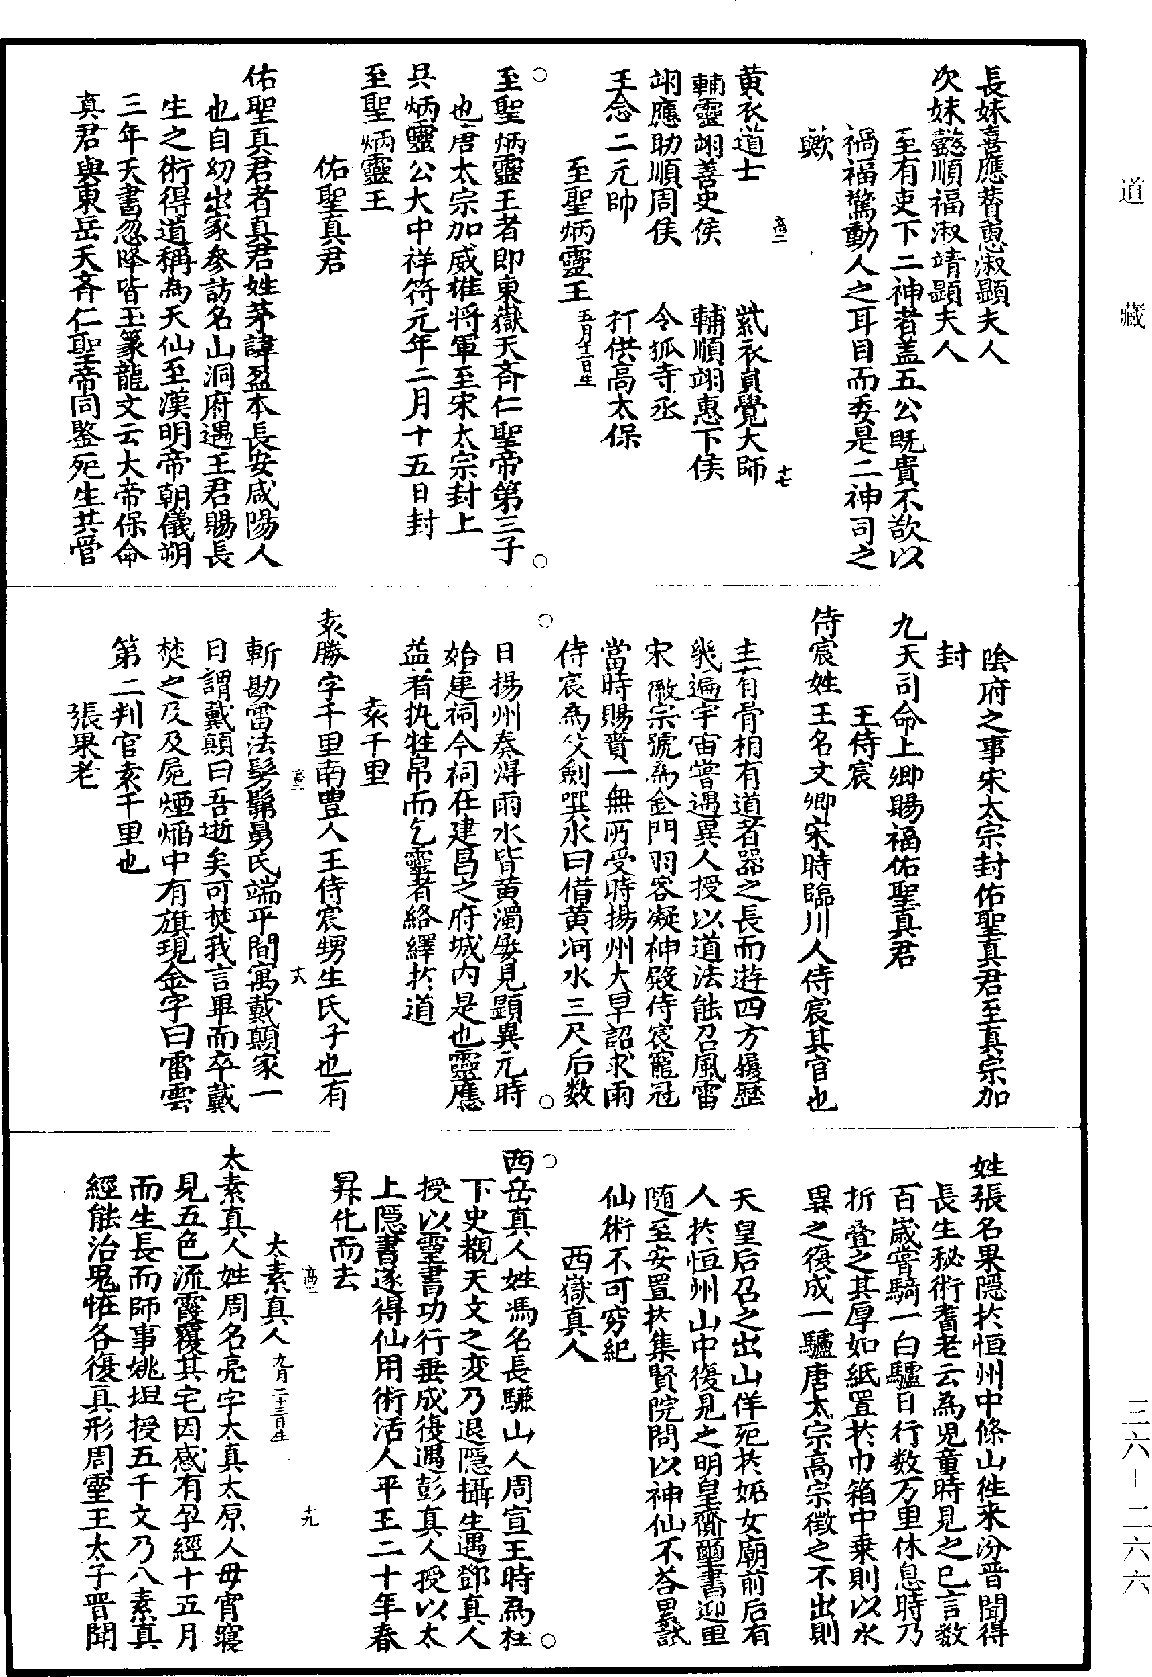 道藏
長妹喜應贊惠淑顯夫人
次妹懿順福淑靖顯夫人
至有吏下二神者盖五公既貴不欲以
禍福驚動人之耳目而委是二神司之
歟
黄衣道士　紫衣員覺大師
輔靈翊善史侯　輔順翊惠卞侯
翊應助順周侯　令狐寺丞
王念二元帥　打供高太保
至聖炳靈王五月十二日生
至聖炳靈王者即東嶽天斉仁聖帝第三子
也唐太宗加威雄将軍至宋太宗封上
㒷炳靈公大中祥符元年二月十五日封
至聖炳靈王
佑聖真君
佑聖真君者真君姓茅諱盈本長安咸陽人
也自幼出家參訪名山洞府遇王君賜長
生之術得道稱為天仙至漢明帝朝儀朔
三年天書忽降皆玉篆龍文云大帝保命
真君與東岳天斉仁聖帝同鑒死生共管
陰府之事宋太宗封佑聖真君至真宗加
封
九天司命上卿賜福佑聖真君
王侍宸
侍宸姓王名文卿宋時臨川人侍宸其官也
主有骨相有道者器之長而遊四方履歴
㡬遍宇宙嘗遇異人授以道法能召風雷
宋徽宗號為金門羽客凝神殿侍宸寵冠
當時賜賚一無所受時揚州大旱詔求雨
侍宸為父劍噀水曰借黄河水三尺后数
日揚州奏得雨水皆黄濁屡見顯異元時
始建祠今祠在建昌之府城内是也靈應
益着者执牲帛而乞靈者絡繹扵道
袁千里
袁勝字千里南豐人王侍宸甥生氏子也有
斬勘雷法髣髴舅氏端平間寓戴顛家一
日謂戴顛曰吾逝矣可焚我言畢而卒戴
焚之及及屍煙熖中有旗現金字曰雷雲
第二判官袁千里也
張果老
姓張名果隠扵恒州中條山徃来汾晋聞得
長生秘術耆老云為児童時見之已言数
百歳嘗騎一白驢日行数万里休息時乃
折叠之其厚如紙置扵巾箱中乗則以水
噀之復成一驢唐太宗高宗徵之不出則
天皇后召之出山佯死扵妬女廟前后有
人扵恒州山中復見之明皇齎璽書迎里
随至安置扵集賢院問以神仙不荅累試
仙術不可穷紀
西嶽真人
西岳真人姓馮名長驪山人周宣王時為柱
下史觀天文之変乃退隠攝生遇鄧真人
授以靈書功行垂成復遇彭真人授以太
上隠書遂得仙用術活人平王二十年春
昇化而去
太素真人九月二十三日生
太素真人姓周名亮字太真太原人毋宵寢
見五色流霞覆其宅因感有孕經十五月
而生長而師事姚坦授五千文乃八素真
經能治鬼恠各復真形周靈王太子晋聞
三六—二六六